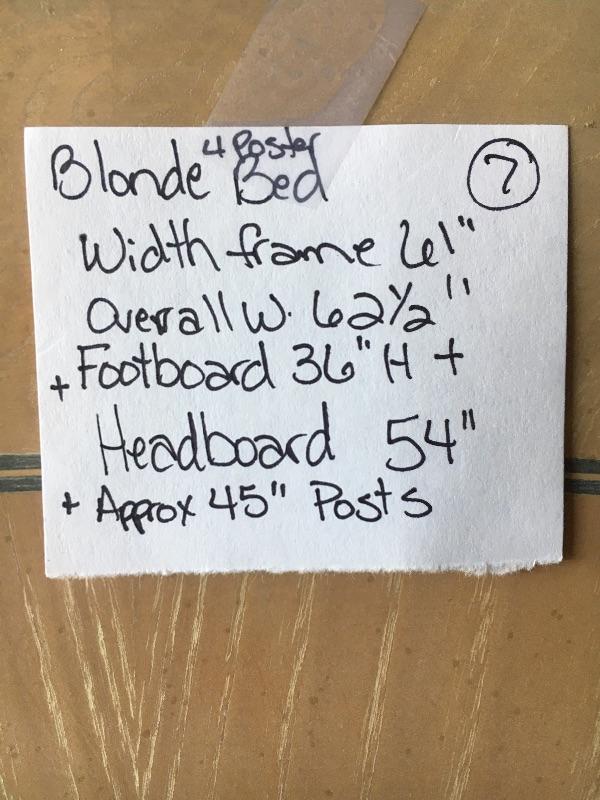 Blonde 4 Poster Bed
7
Width frame 61"
Overall W. 62½"
+ Footboard 36" H +
Headboard 54"
+ Approx 45" Posts